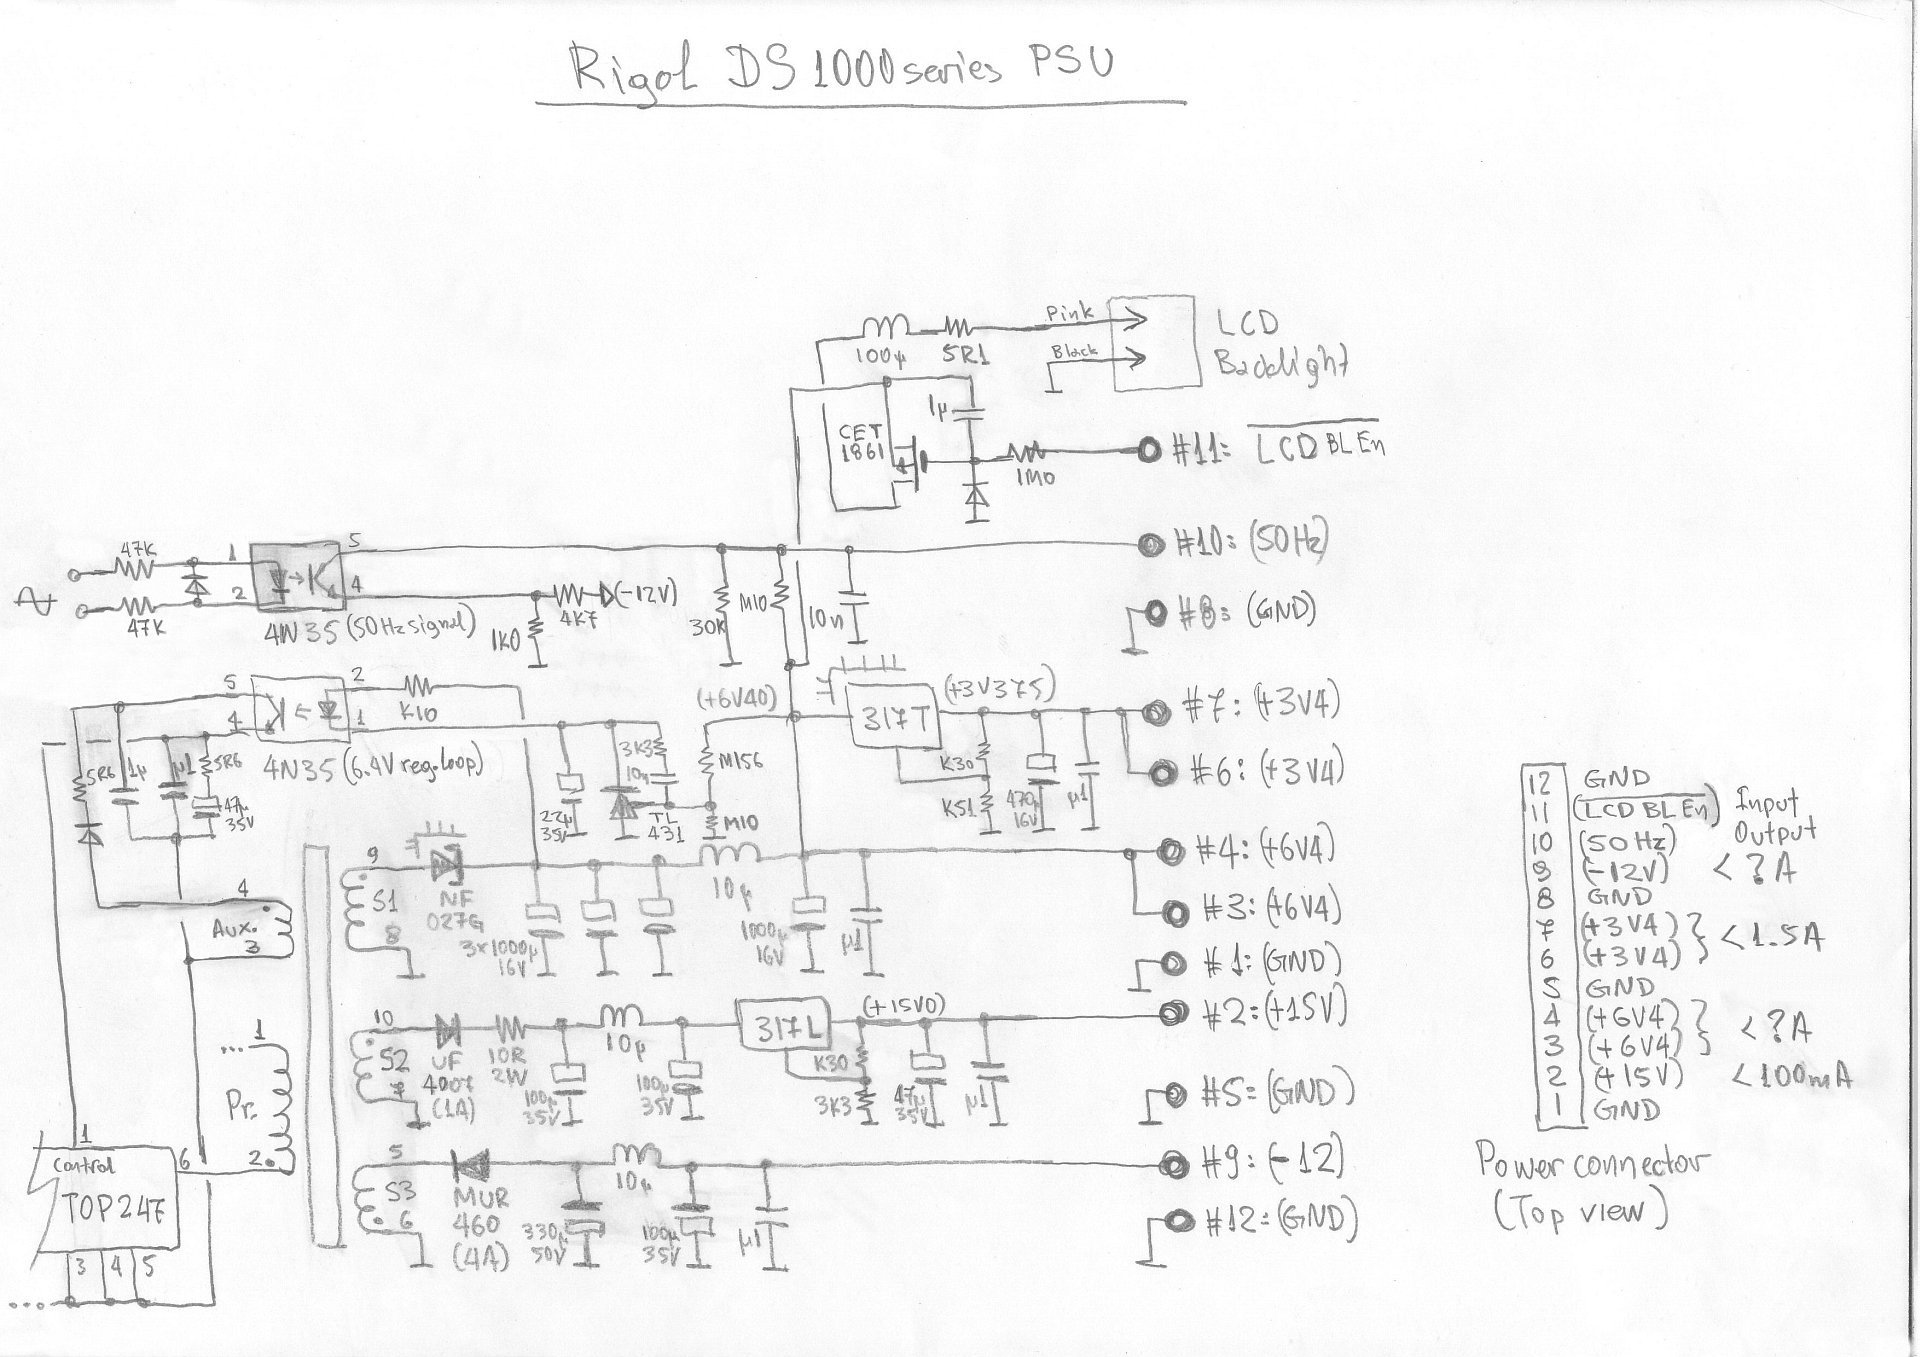 Rigol DS1000series PSU
Pink
LCD
Backlight
100µ
5R1
Black
1µ
CET
1861
1M0
#11: LCD BL En
47K
1
5
2
4
47K
4N35 (50Hz signal)
1K0
4K7
(-12V)
30K
M10
10n
#10: (50Hz)
#8: (GND)
5
2
4
1
K10
4N35 (6.4V reg. loop)
5R6
1µ
µ1
5R6
47µ
35V
22µ
35V
3K3
10n
TL
431
M156
M10
(+6V40)
317T
(+3V375)
K30
K51
470µ
16V
µ1
#7: (+3V4)
#6: (+3V4)
9
S1
8
NF
027G
3x1000µ
16V
10µ
1000µ
16V
µ1
#4: (+6V4)
#3: (+6V4)
#1: (GND)
4
Aux.
3
10
S2
7
UF
4007
(1A)
10R
2W
100µ
35V
10µ
100µ
35V
317L
(+15V0)
K30
3K3
47µ
35V
µ1
#2: (+15V)
#5: (GND)
... 1
Pr.
2
5
S3
6
MUR
460
(4A)
330µ
50V
10µ
100µ
35V
µ1
#9: (-12)
#12: (GND)
1
Control
6
TOP247
3 4 5
...
12 GND
11 (LCD BL En) Input
10 (50Hz) Output
9 (-12V) <?A
8 GND
7 (+3V4)
6 (+3V4) } <1.5A
5 GND
4 (+6V4)
3 (+6V4) } <?A
2 (+15V) <100mA
1 GND
Power connector
(Top view)